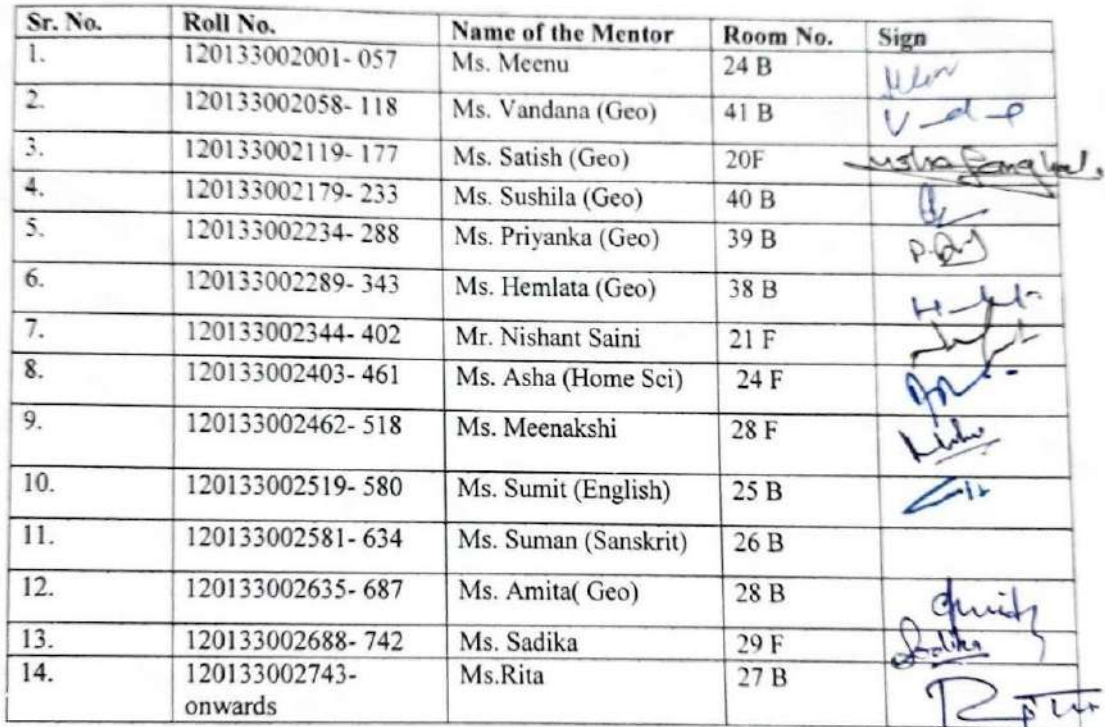 Sr. No. Roll No. Name of the Mentor Room No. Sign
1. 120133002001- 057 Ms. Meenu 24 B
2. 120133002058- 118 Ms. Vandana (Geo) 41 B
3. 120133002119- 177 Ms. Satish (Geo) 20F
4. 120133002179- 233 Ms. Sushila (Geo) 40 B
5. 120133002234- 288 Ms. Priyanka (Geo) 39 B
6. 120133002289- 343 Ms. Hemlata (Geo) 38 B
7. 120133002344- 402 Mr. Nishant Saini 21 F
8. 120133002403- 461 Ms. Asha (Home Sci) 24 F
9. 120133002462- 518 Ms. Meenakshi 28 F
10. 120133002519- 580 Ms. Sumit (English) 25 B
11. 120133002581- 634 Ms. Suman (Sanskrit) 26 B
12. 120133002635- 687 Ms. Amita( Geo) 28 B
13. 120133002688- 742 Ms. Sadika 29 F Sadika
14. 120133002743- Ms.Rita 27 B
onwards